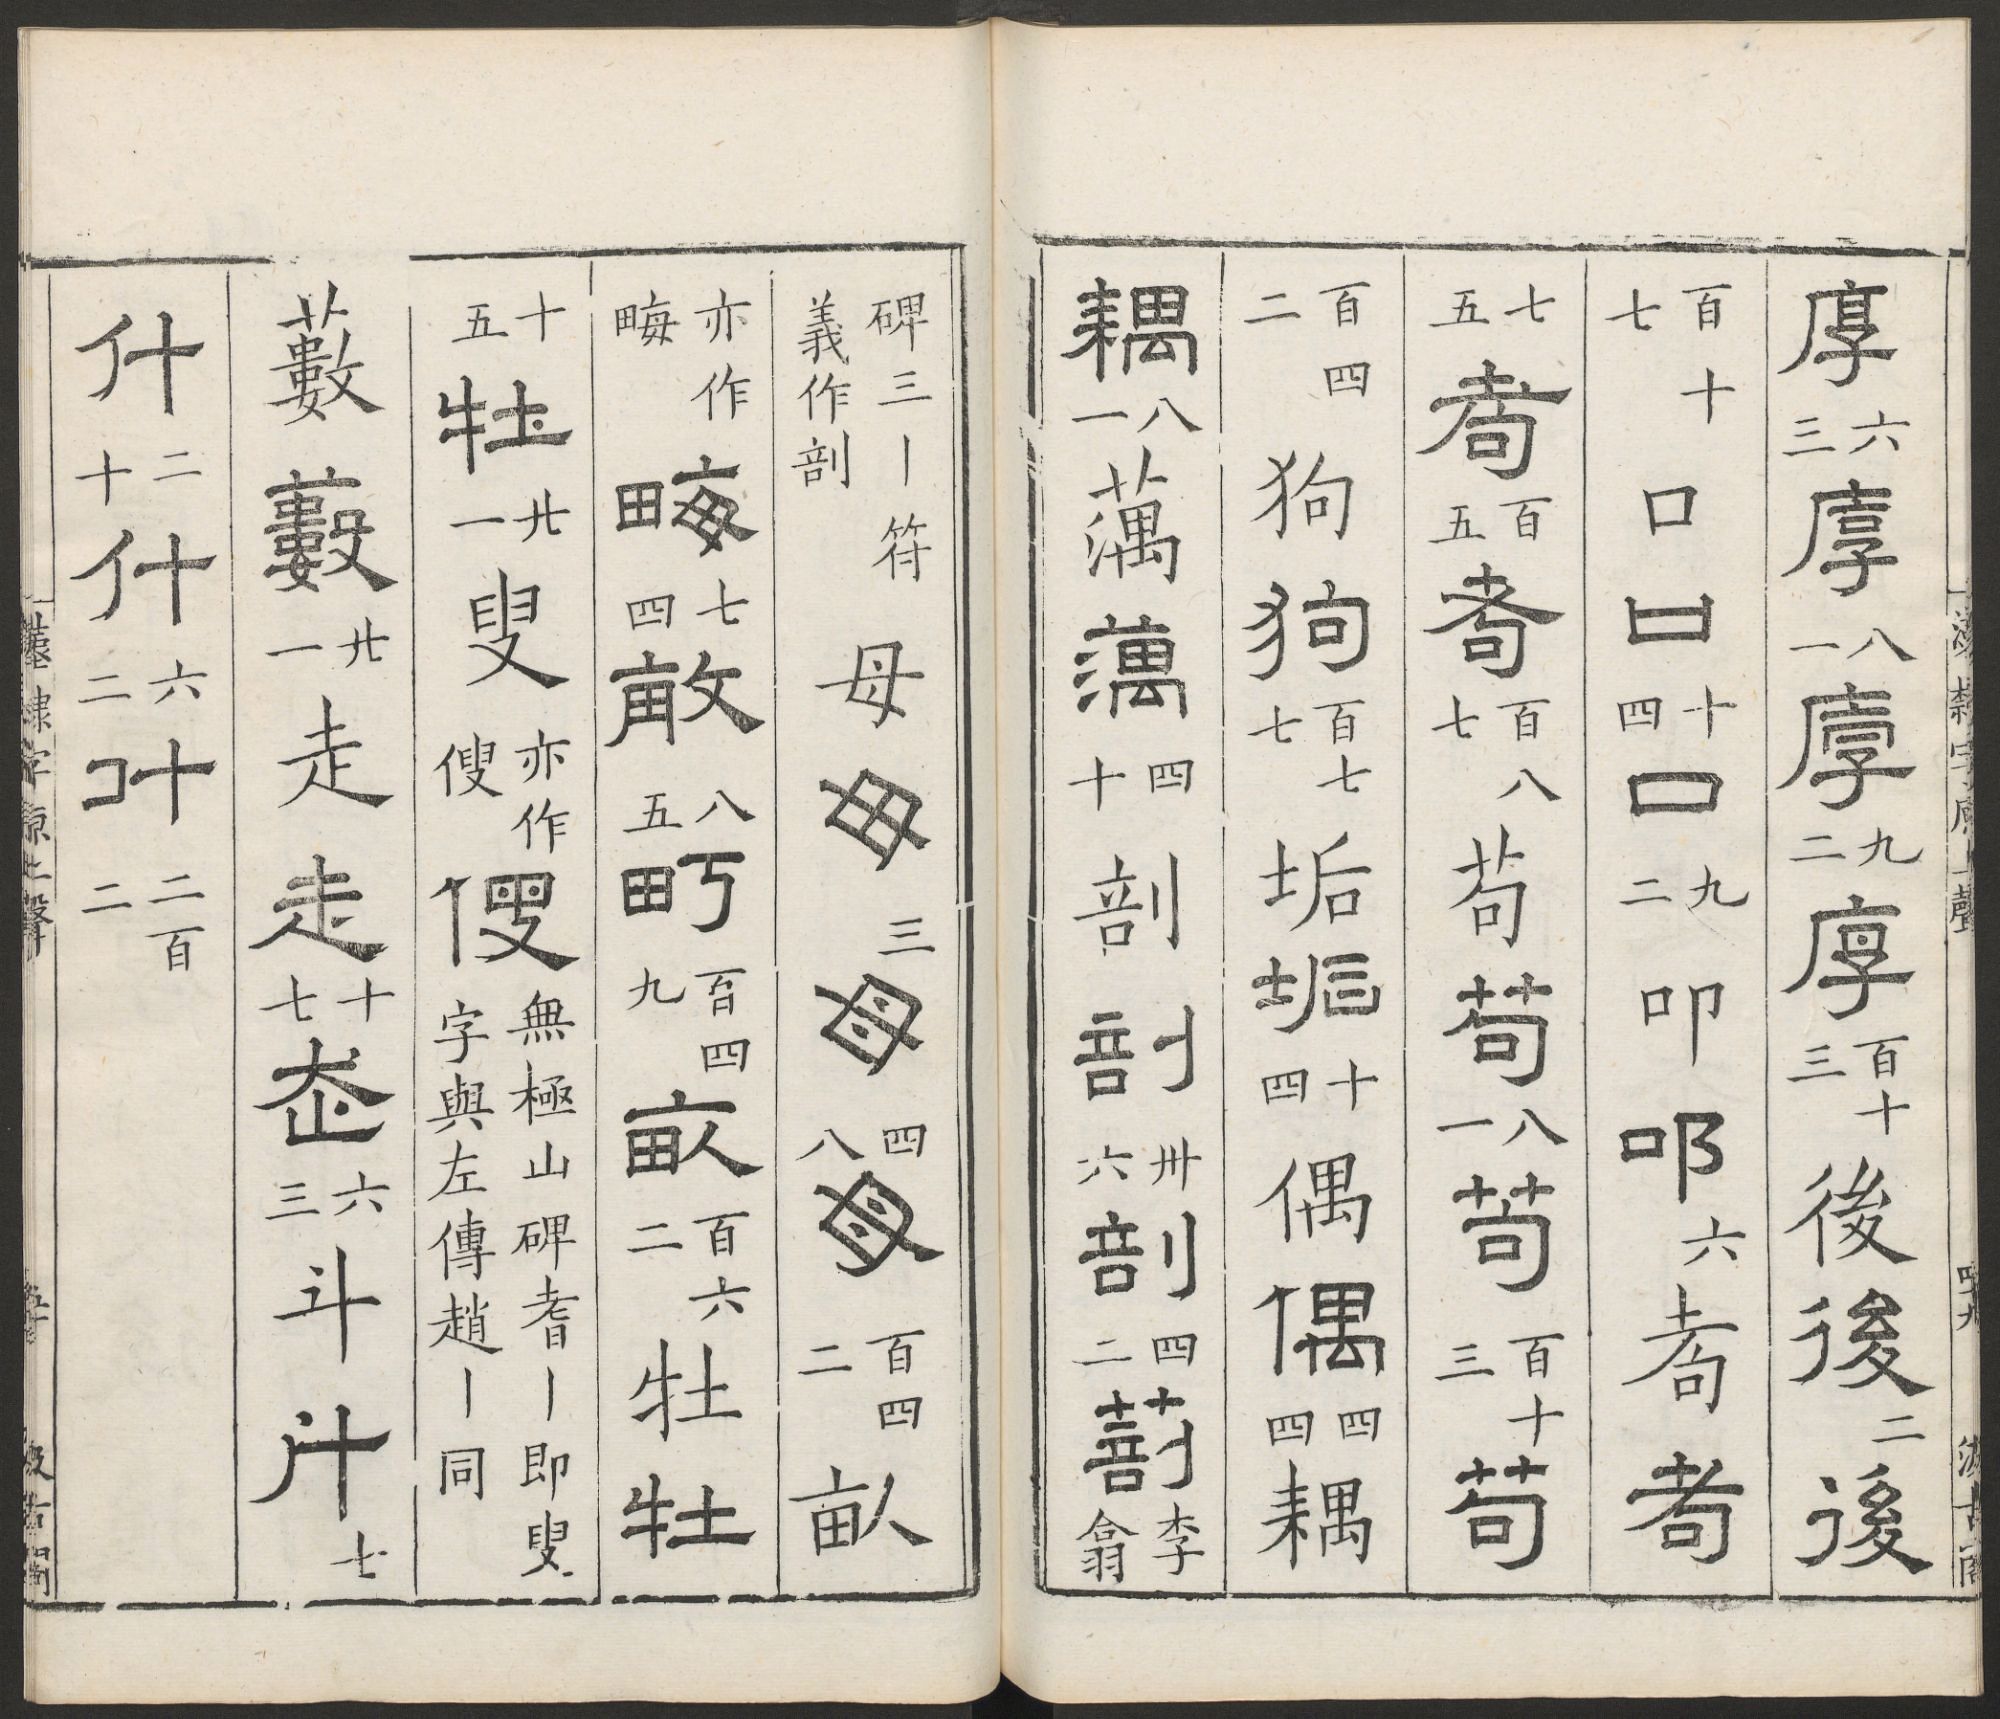 厚六三厚八一厚九二厚百十三後後二後
百十七口口十四口九二叩叩六耇耇
七五耇百五耇百八七茍茍八一茍百十三茍
百四二狗狗百七七垢垢十四偶偶四四耦
耦八一藕藕四十剖剖卅六剖四二剖李翕
碑三丨符義作剖母母三母四八母百四二畝
亦作畮畮七四畝八五町百四九畝百六二牡牡
十五牡廿一叟亦作傁傁無極山碑耆丨即叟字與左傳趙丨同
藪藪廿一走走十七走六三斗斗七
什二十什六二叶二百二
漢隸字源上聲 四十九 汲古閣
漢隸字源上聲 五十 汲古閣